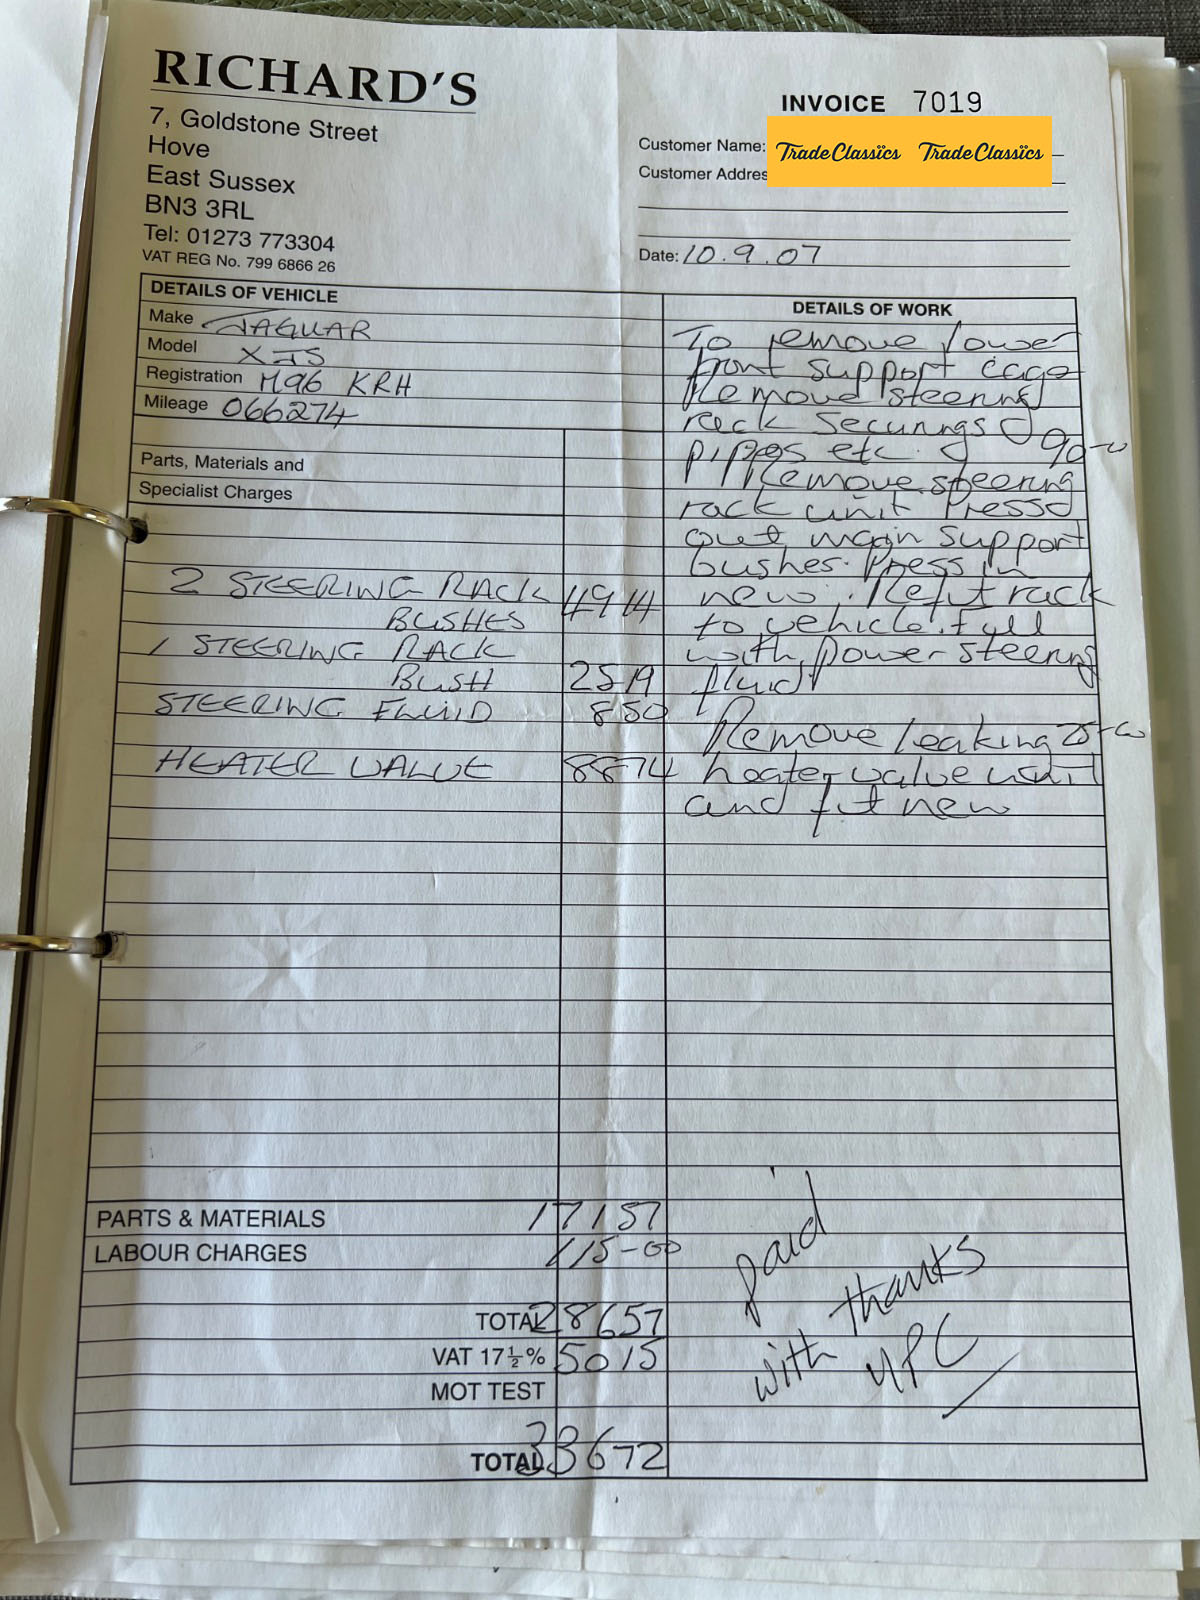 RICHARD'S
7, Goldstone Street
Hove
East Sussex
BN3 3RL
Tel: 01273 773304
VAT REG No. 799 6866 26
INVOICE 7019
Customer Name: TradeClassics TradeClassics
Customer Addres
Date: 10.9.07
DETAILS OF VEHICLE
Make JAGUAR
Model XJS
Registration M96 KRH
Mileage 066274
Parts, Materials and
Specialist Charges
2 STEERING RACK 49 14
BUSHES
1 STEERING RACK
BUSH 25 19
STEERING FLUID 8 50
HEATER VALVE 88 74
DETAILS OF WORK
To remove lower
front support cage
Remove steering
rack securings
pipes etc. 90-00
Remove steering
rack unit Press
out main support
bushes. Press in
new. Refit rack
to vehicle. Fill
with power steering
fluid
Remove leaking 25-00
heater valve unit
and fit new
PARTS & MATERIALS 171 57
LABOUR CHARGES 115-00
TOTAL 286 57
VAT 17½% 50 15
MOT TEST
TOTAL 336 72
paid
with thanks